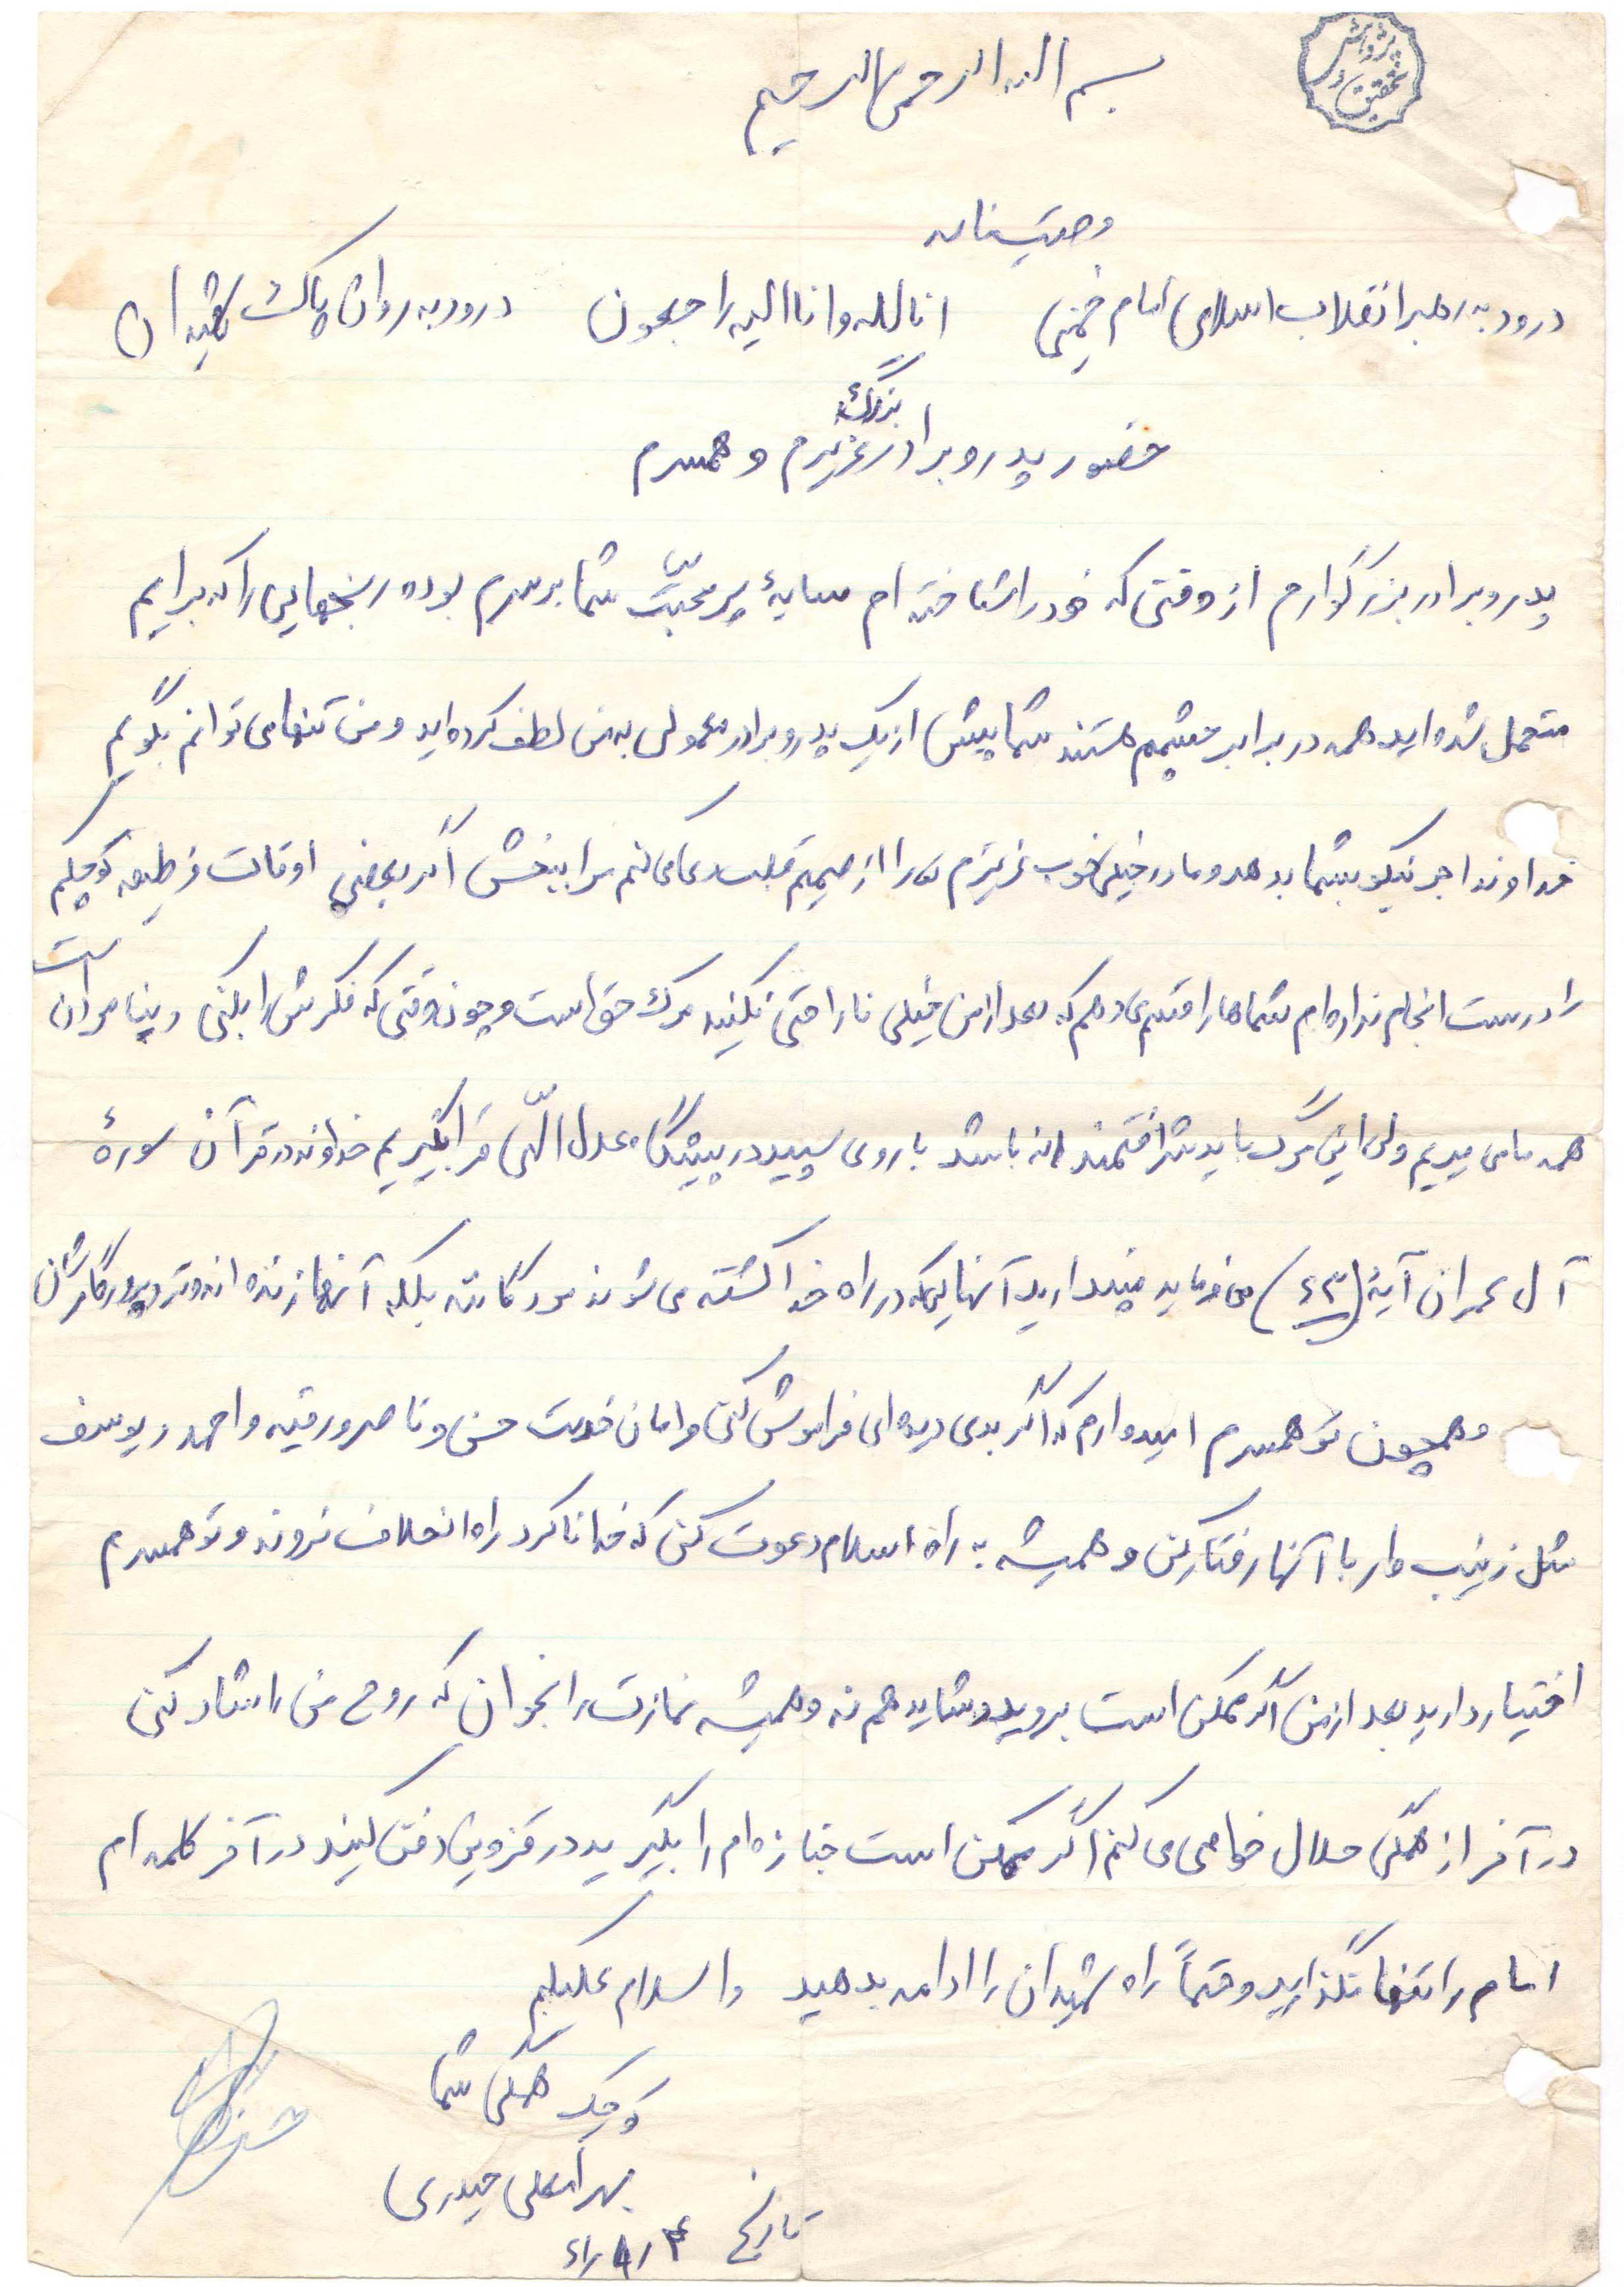 تحقیق و پژوهش
بسم الله الرحمن الرحیم
وصیتنامه
درود به رهبر انقلاب اسلامی امام خمینی انالله وانا الیه راجعون درود به روان پاک شهیدان
بزرگ
حضور پدر و برادر عزیزم و همسرم
پدر و برادر بزرگوارم از وقتی که خود را شناخته ام سایهٔ پر محبّت شما بر سرم بوده رنجهایی را که برایم
متحمل شده اید همه در برابر چشمم هستند شما بیش از یک پدر و برادر معمولی به من لطف کرده اید و من تنها می توانم بگویم
خداوند اجر نیکو بشما بدهد و مادر خیلی خوب عزیزم را از صمیم قلب دعا می کنم مرا ببخش اگر بعضی اوقات وظیفه کوچکم
را درست انجام نداده ام شماها را قسم می دهم که بعد از من خیلی ناراحتی نکنید مرگ حق است و چون وقتی که فکرش را بکنی
همه ما می میریم ولی این مرگ باید شرافتمندانه باشد با روی سپید در پیشگاه عدل الهّی قرا بگیریم خداوند در قرآن سورهٔ
آل عمران آیهٔ ( ) می فرماید مپندارید آنهاییکه در راه خدا کشته می شوند مردگانند بلکه آنها زنده اند و نزد پروردگارشان
و همچون تو همسرم امیدوارم که اگر بدی دیده ای فراموش کنی و امان خدمت حسن و ناصر و رقیه و احمد و یوسف
مثل زینب وار با آنها رفتار کن و همیشه به راه اسلام دعوت کن که خدا ناکرد راه انحلاف نروند و تو همسرم
اختیار دارید بعد از من اگر ممکن است بروید و شاید هم نه و همیشه نمازت را بخوان که روح من را شاد کنی
در آخر از همگی حلال خواهی می کنم اگر ممکن است جنازه ام را بگیرید در قزوین دفن کنید در آخر کلمه ام
امام را تنها نگذارید و حتماً راه شهیدان را ادامه بدهید والسلام علیکم
کوچک همگی شما
بهرامعلی حیدری
تاریخ